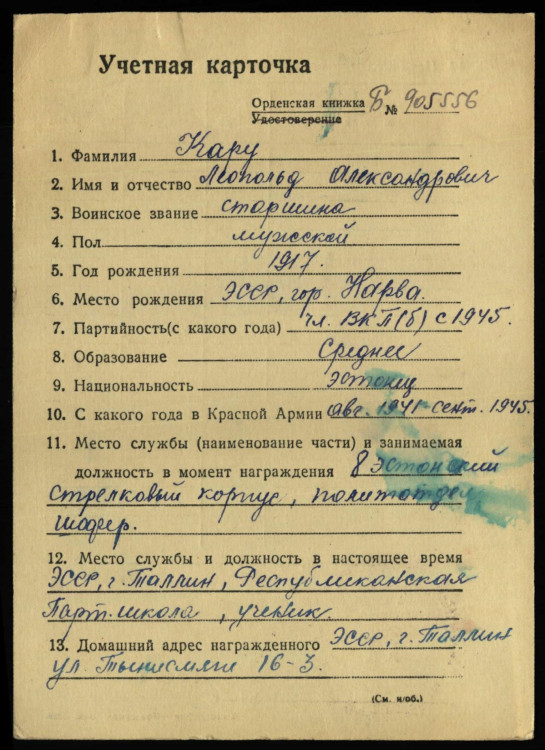 Учетная карточка
Орденская книжка Б № 905556
Удостоверение
1. Фамилия Кару
2. Имя и отчество Леопольд Александрович
3. Воинское звание старшина
4. Пол мужской
5. Год рождения 1917.
6. Место рождения ЭССР, гор. Нарва.
7. Партийность(с какого года) чл. ВКП(б) с 1945.
8. Образование Среднее
9. Национальность эстонец
10. С какого года в Красной Армии Авг. 1941-сент. 1945.
11. Место службы (наименование части) и занимаемая
должность в момент награждения 8 Эстонский
стрелковый корпус, политотдел
шофер.
12. Место службы и должность в настоящее время
ЭССР, г. Таллин, Республиканская
Парт. школа, ученик.
13. Домашний адрес награжденного ЭССР, г. Таллин
ул. Тынисмяги 16-3.
(См. н/об.)